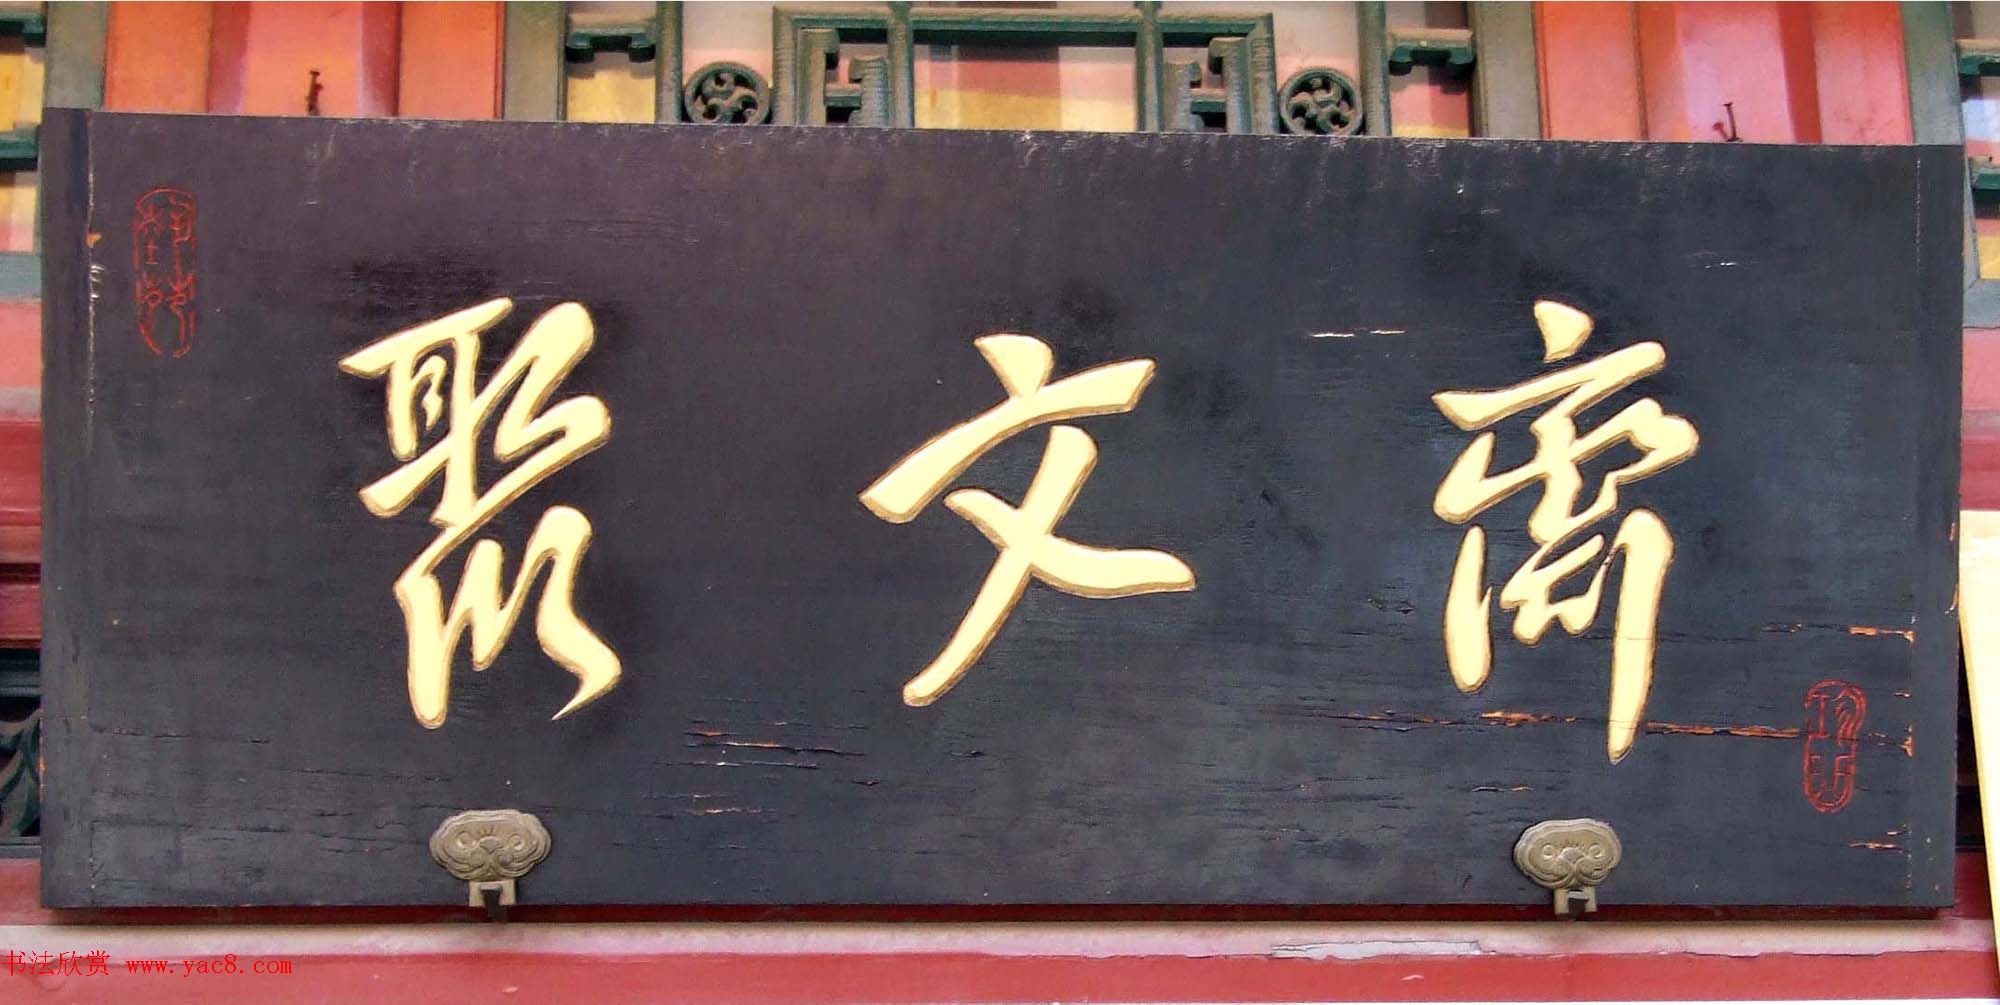 聚文齋
书法欣赏 www.yac8.com